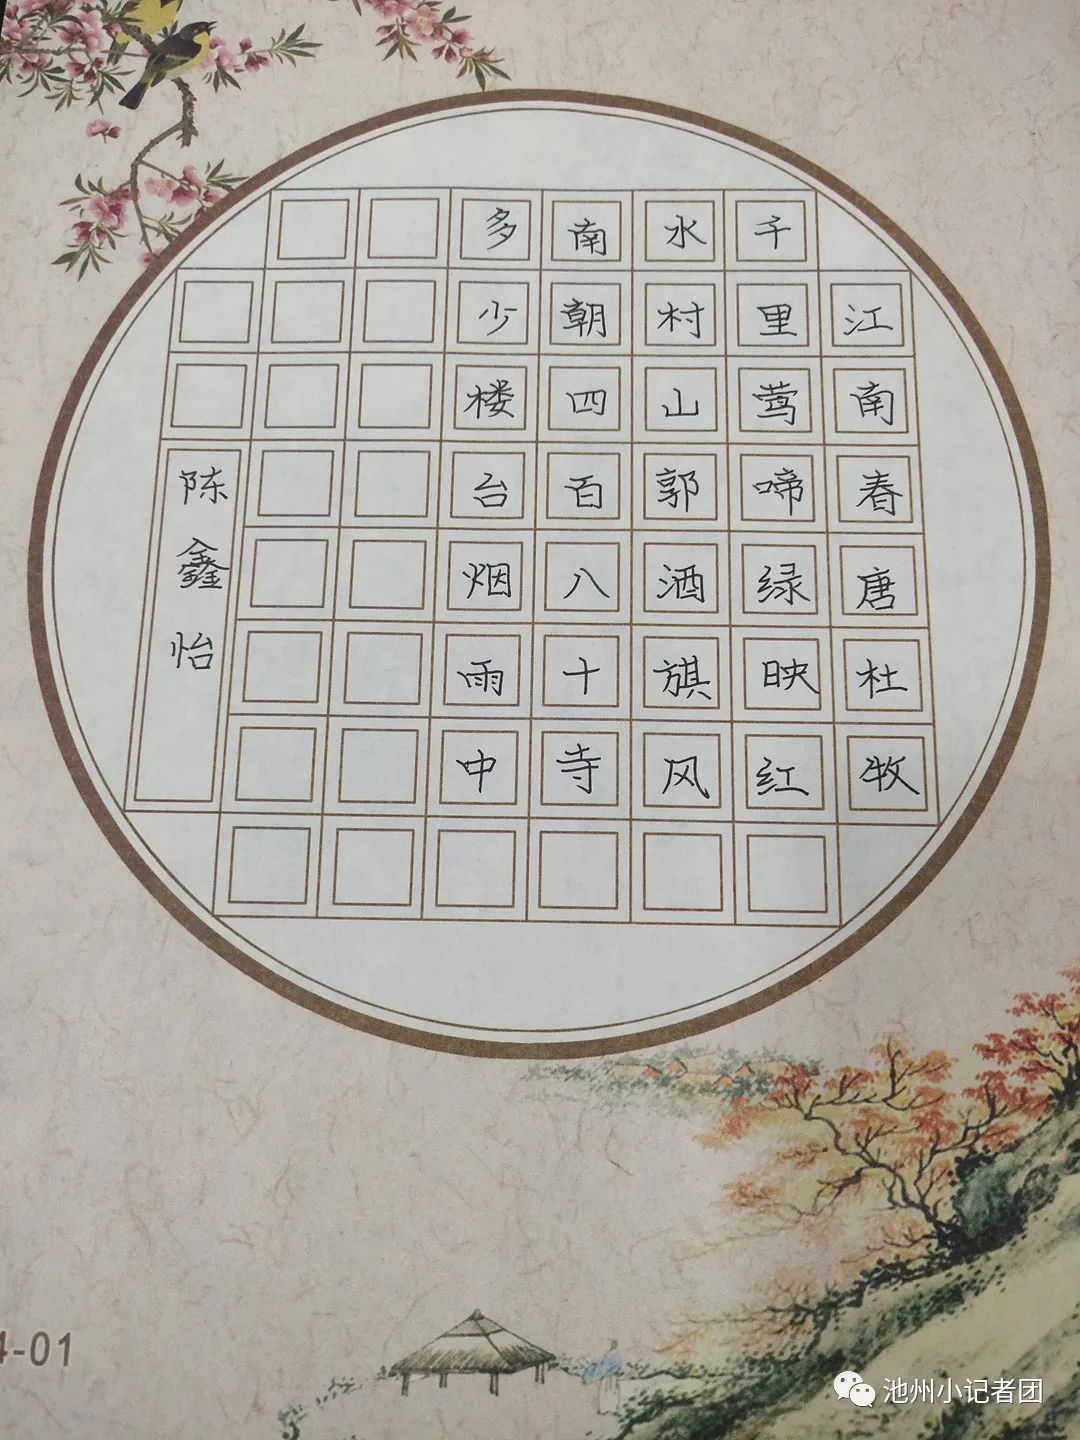 江南春唐杜牧
千里莺啼绿映红
水村山郭酒旗风
南朝四百八十寺
多少楼台烟雨中
陈鑫怡
4-01
池州小记者团